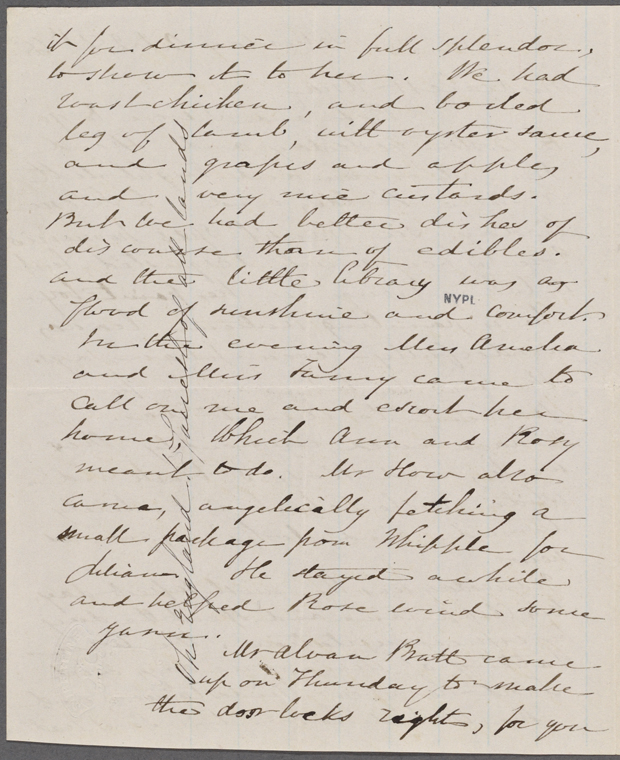 it for dinner in full splendor,
to show it to her. We had
roast chicken, and boiled
leg of lamb, with oyster sauce,
and grapes and apples,
and very nice custards.
But we had better dishes of
discourse than of edibles.
and the little library was a
flood of sunshine and comfort.
NYPL
In the evening Miss Amelia
and Miss Fanny came to
call on me and escort her
home, which Ann and Rosy
meant to do. Mr How also
came, angelically fetching a
small package from Whipple for
Julian. He stayed awhile
and helped Rose wind some
yarn.
Mr Alvan Pratt came
up on Thursday to make
the door locks right, for you
Oh England of all lands